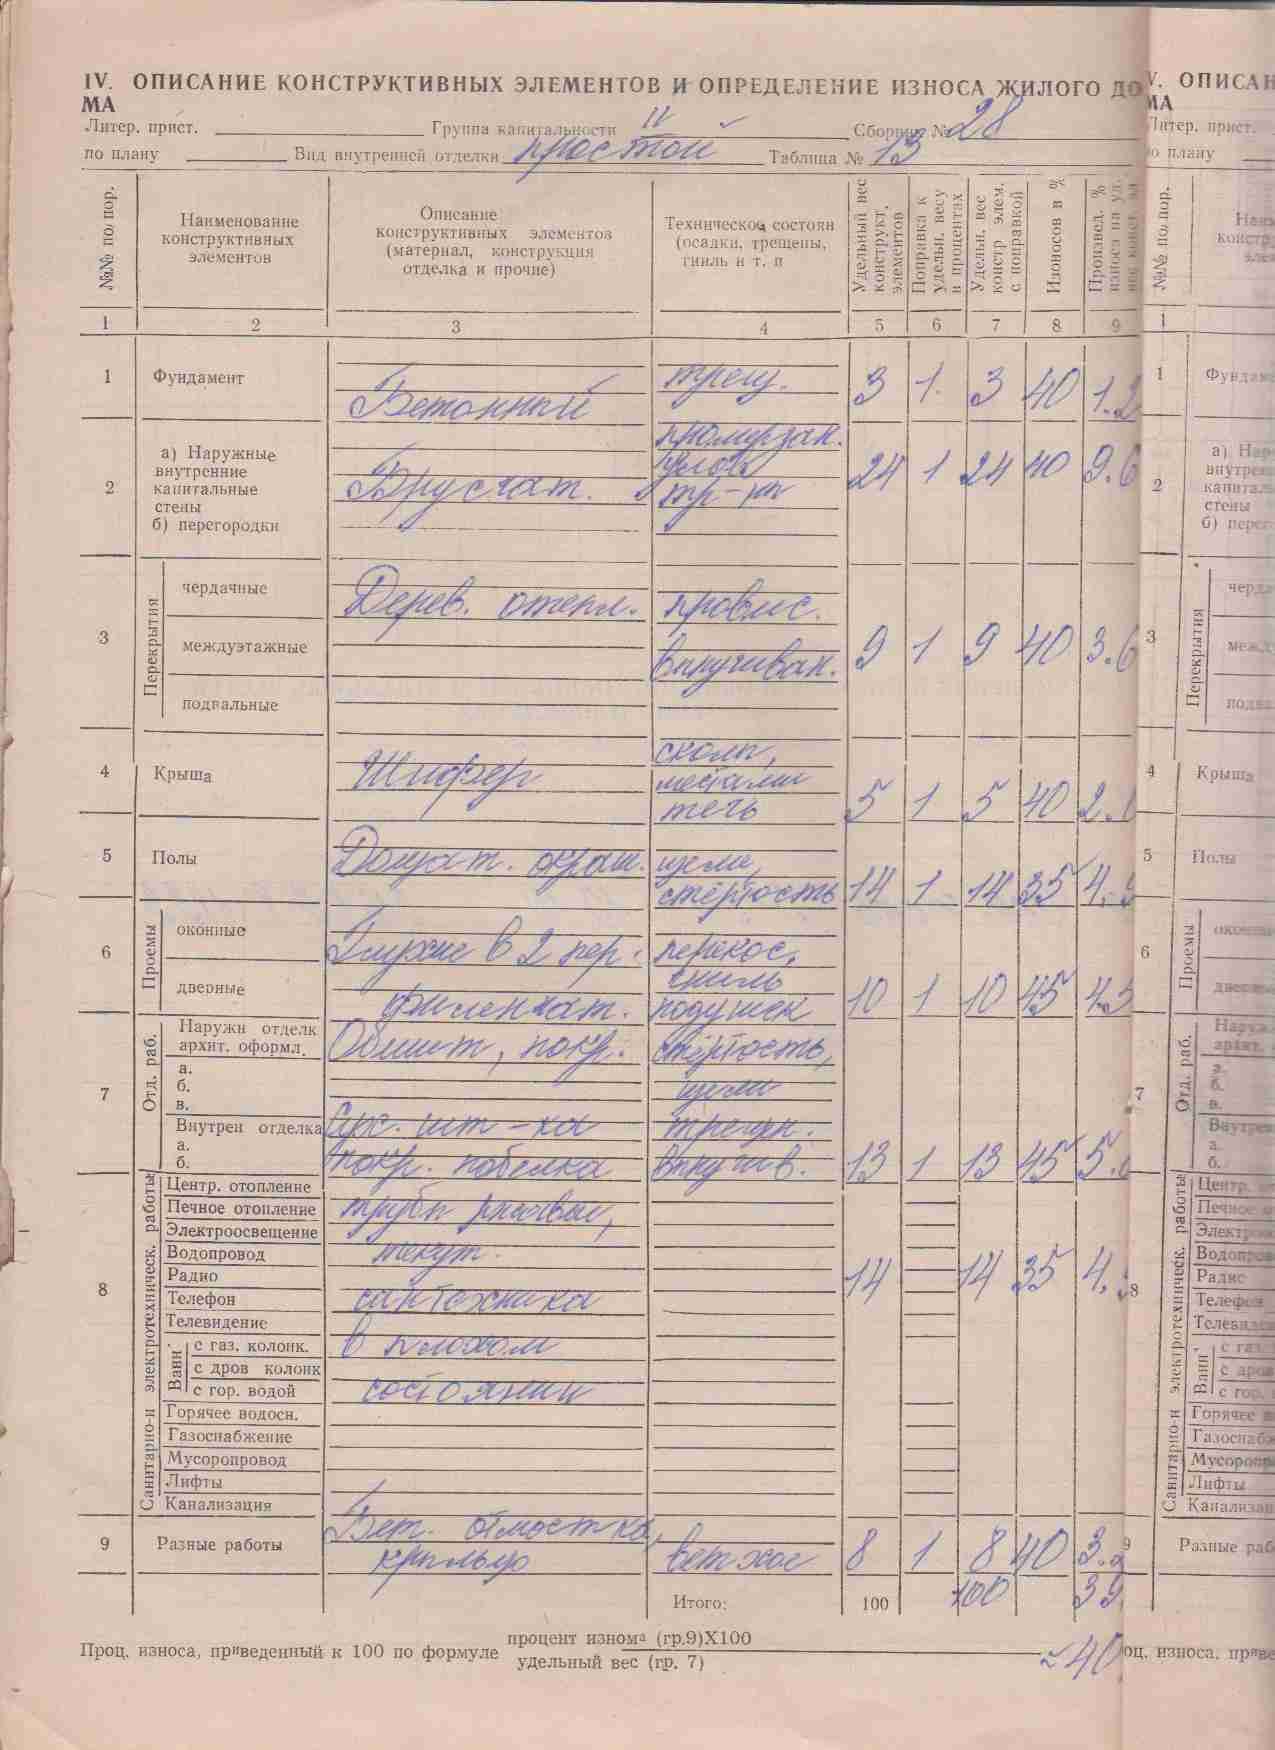 IV. ОПИСАНИЕ КОНСТРУКТИВНЫХ ЭЛЕМЕНТОВ И ОПРЕДЕЛЕНИЕ ИЗНОСА ЖИЛОГО ДО
МА
Литер. прист. Группа капитальности II Сборник № 28
по плану Вид внутренней отделки простой Таблица № 13
№№ по пор.
Наименование конструктивных элементов
Описание конструктивных элементов (материал, конструкция отделка и прочие)
Техническое состоян (осадки, трещены, гниль и т. п
Удельный вес конструкт, элементов
Поправка к удельн. весу в процентах
Удельн. вес констр элем. с поправкой
Износов в %
Произвед. % износа на уд.
1 2 3 4 5 6 7 8 9
1 Фундамент Бетонный трещ. 3 1. 3 40 1.2
2 а) Наружные внутренние капитальные стены б) перегородки Брусчат. промерзан. углов тр-ны 24 1 24 40 9.6
3 Перекрытия
чердачные Дерев. отепл. провис.
междуэтажные выпучиван. 9 1 9 40 3.6
подвальные
4 Крыша Шифер сколы, местами течь 5 1 5 40 2.
5 Полы Дощат. окраш. щели, стёртость 14 1 14 35 4.
6 Проемы
оконные Глухие в 2 пер. перекос,
дверные филенчат. гниль подушек 10 1 10 45 4.5
7 Отд. раб.
Наружн отделк архит. оформл. Обшит, покр. стёртость,
а.
б. щели
в.
Внутрен отделка Сух. шт-ка трещин.
а.
б. покр. побелка выпучив. 13 1 13 45 5.
8 Санитарно-и электротехническ. работы
Центр. отопление
Печное отопление трубы ржавые,
Электроосвещение
Водопровод текут.
Радио 14 14 35 4.
Телефон сантехника
Телевидение
Ванн. с газ. колонк. в плохом
с дров колонк
с гор. водой состоянии
Горячее водосн.
Газоснабжение
Мусоропровод
Лифты
Канализация
9 Разные работы Бет. отмостка, крыльцо ветхое 8 1 8 40 3.2
Итого: 100 100 39
Проц. износа, приведенный к 100 по формуле процент износа (гр.9)X100 ~40
удельный вес (гр. 7)
V. ОПИСАН
МА
Литер. прист.
по плану
№№ по пор.
1
1 Фундам
2 а) Нар
внутрен
капиталь
стены
б) перег
3 Перекрытия
черд
межд
подва
4 Крыша
5 Полы
6 Проемы
оконн
дверн
7 Отд. раб.
а.
б.
в.
Внутрен
а.
б.
8 Санитарно-и электротехническ. работы
Центр.
Печное
Электро
Водопрово
Радис
Телефо
Телевид
с газ.
с дров
с гор.
Горячее в
Газоснабж
Мусоропр
Лифты
Канализа
9 Разные раб
оц. износа, приве